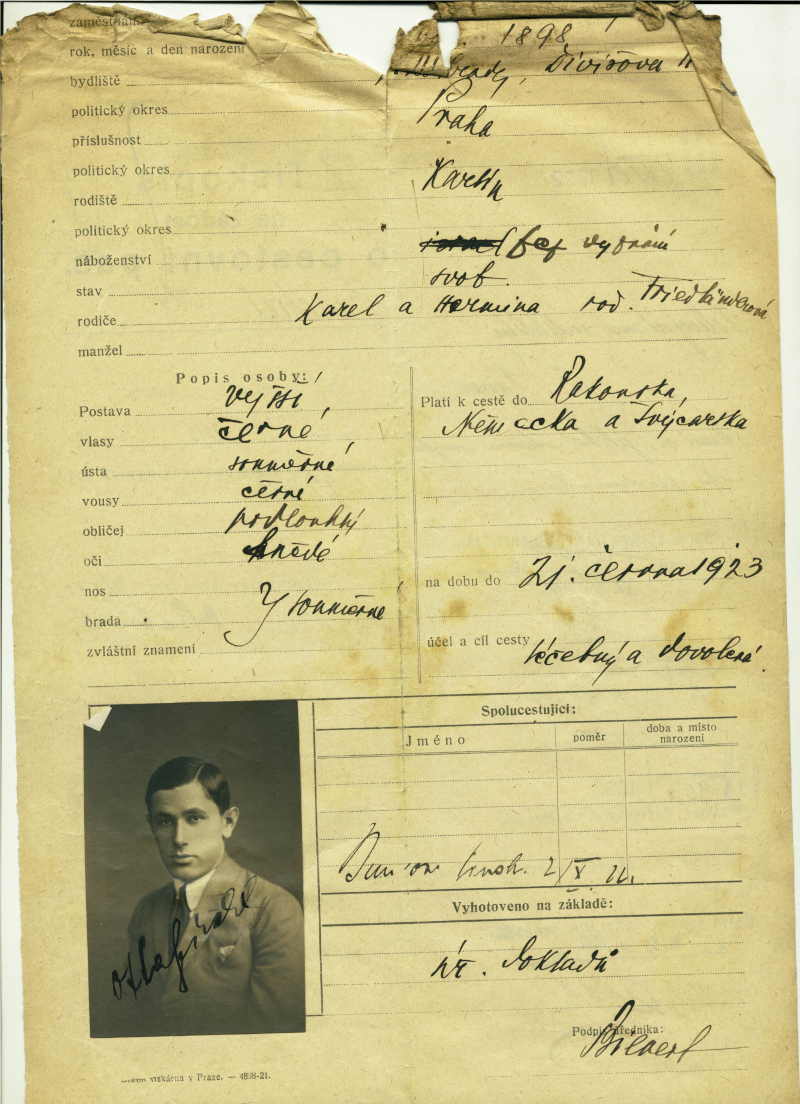 zaměstnání
rok, měsíc a den narození 1898
bydliště Divišova
politický okres Praha
příslušnost
politický okres Karlín
rodiště
politický okres
náboženství bez vyznání
stav svob.
rodiče Karel a Hermina roz. Friedländerová
manžel
Popis osoby:
Postava vyšší
vlasy černé
ústa souměrné
vousy černé
obličej podlouhlý
oči hnědé
nos
brada } souměrné
zvláštní znamení
Platí k cestě do Rakouska,
Německa a Švýcarska
na dobu do 21. června 1923
účel a cíl cesty léčebný a dovolená
Spolucestující:
Jméno poměr doba a místo narození
Vyhotoveno na základě:
úř. dokladů
Podpis úředníka:
tiskárna v Praze. — 4898-21.